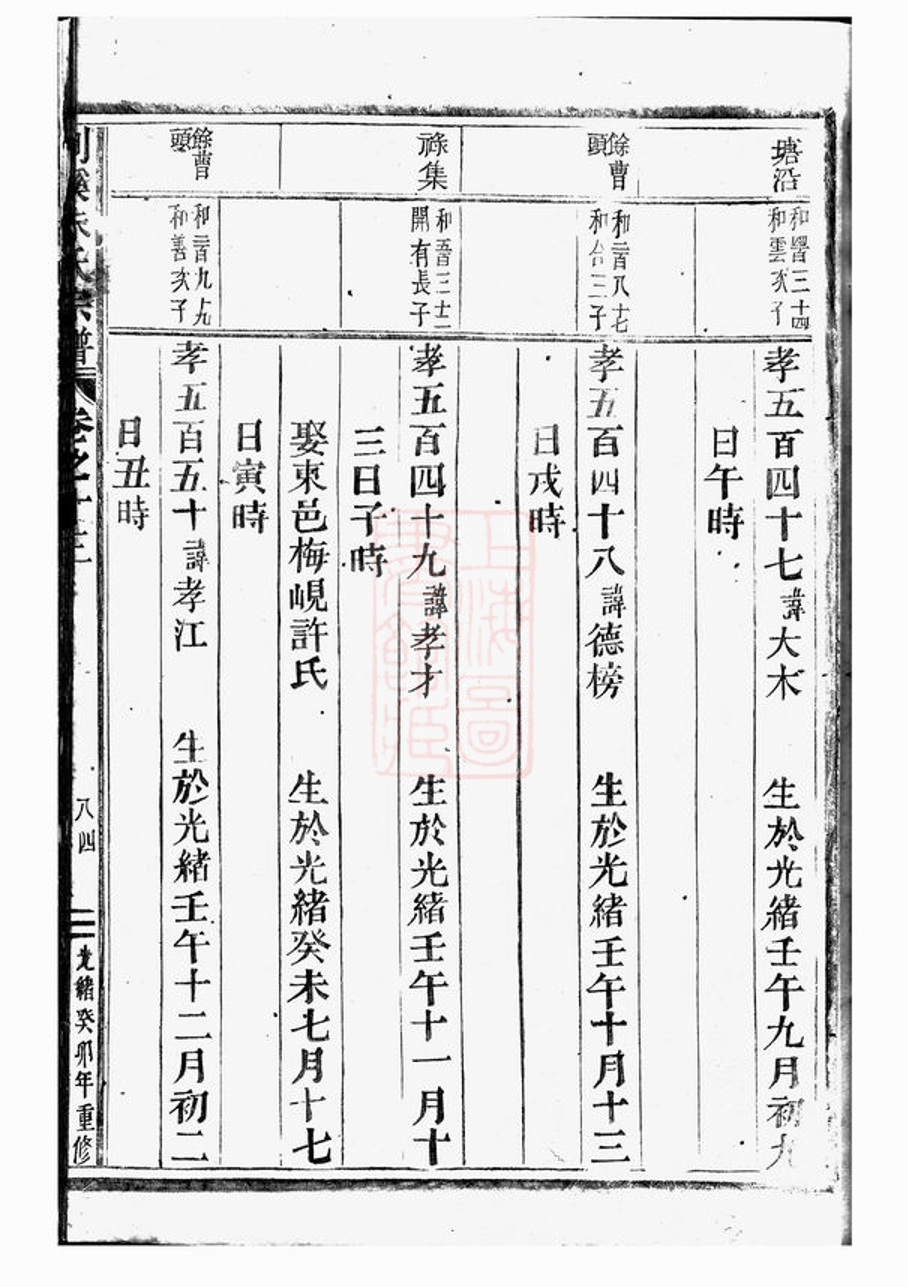 塘沿
和三十四
和雲次子
孝五百四十七諱大木　生於光緒壬午九月初九
日午時
餘曹頭
和二百八十七
和台三子
孝五百四十八諱德榜　生於光緒壬午十月十三
日戌時
祿集
和百三十二
開有長子
孝五百四十九諱孝才　生於光緒壬午十一月十
三日子時
娶東邑梅峴許氏　生於光緒癸未七月十七
日寅時
餘曹頭
和二百九十九
和善次子
孝五百五十諱孝江　生於光緒壬午十二月初二
日丑時
氏宗譜　卷之十三
八四
光緒癸卯年重修
上海圖書館藏